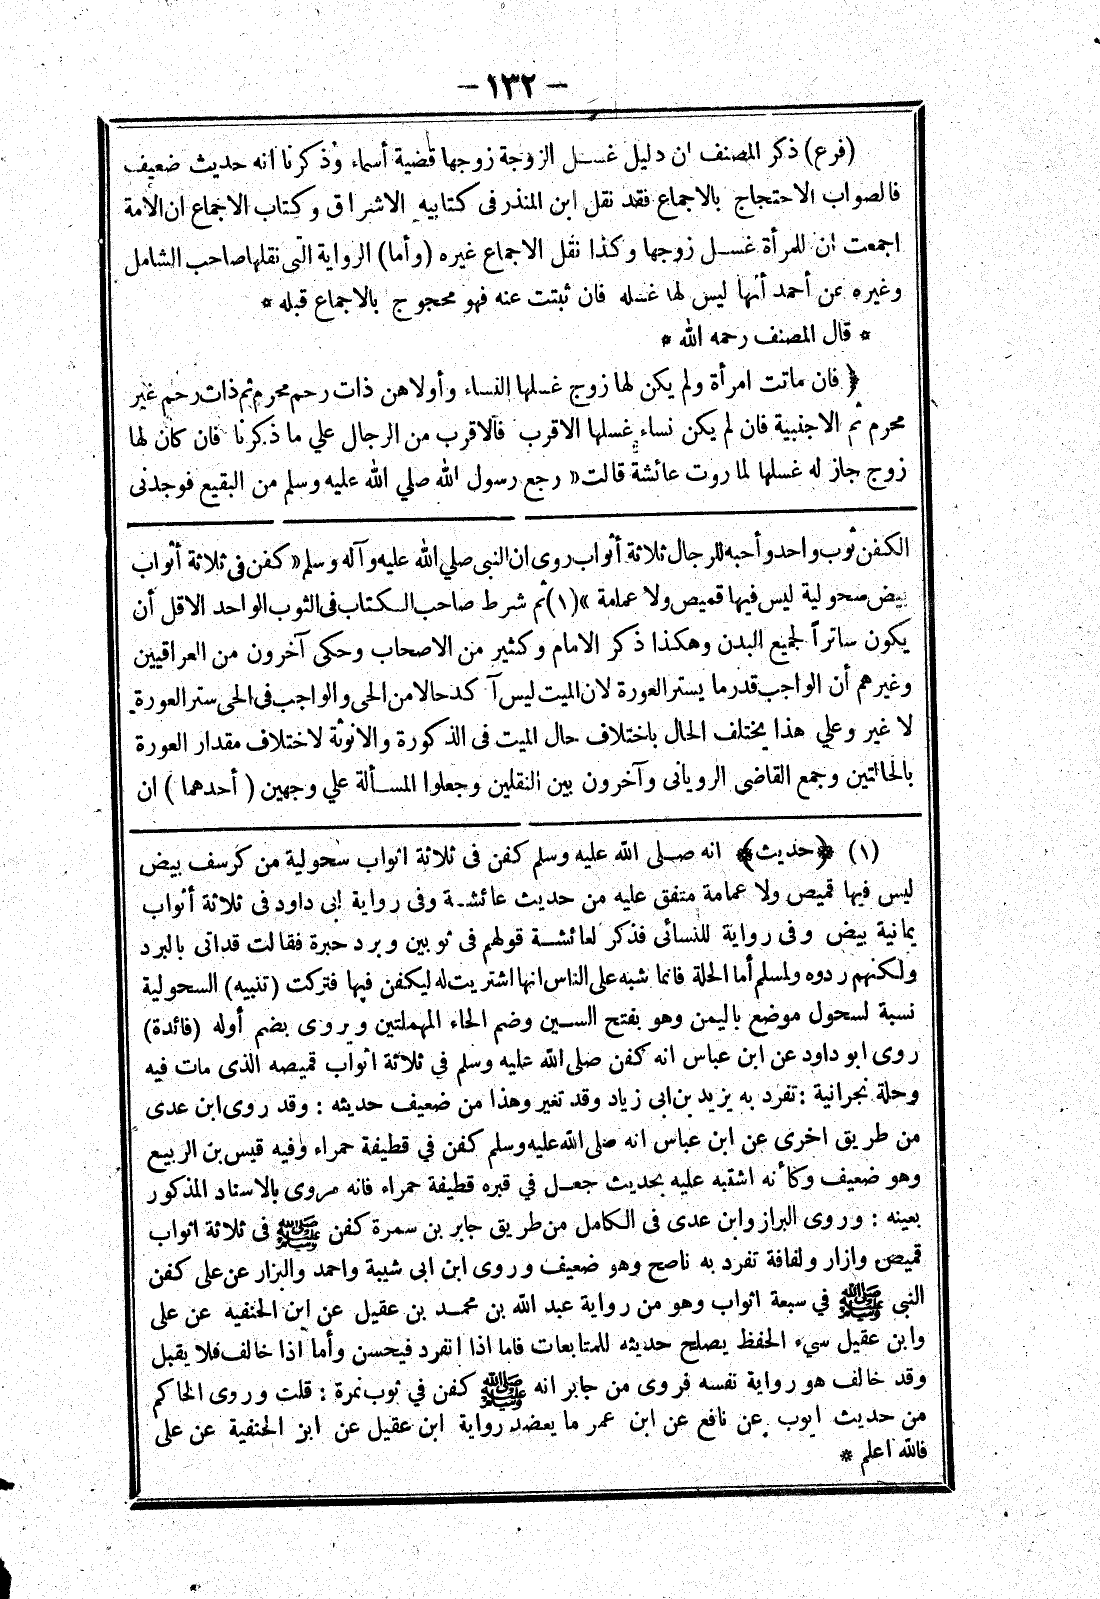 - ١٣٢ -
(فرع) ذكر المصنف ان دليل غسل الزوجة زوجها قضية أسماء وذكرنا انه حديث ضعيف
فالصواب الاحتجاج بالاجماع فقد نقل ابن المنذر فى كتابيه الاشراق وكتاب الاجماع ان الأمة
اجمعت ان للمرأة غسل زوجها وكذا نقل الاجماع غيره (وأما) الرواية التى نقلها صاحب الشامل
وغيره عن أحمد أنها ليس لها غسله فان ثبتت عنه فهو محجوج بالاجماع قبله *
* قال المصنف رحمه الله *
﴿ فان ماتت امرأة ولم يكن لها زوج غسلها النساء وأولاهن ذات رحم محرم ثم ذات رحم غير
محرم ثم الاجنبية فان لم يكن نساء غسلها الاقرب فالاقرب من الرجال علي ما ذكرنا فان كان لها
زوج جاز له غسلها لما روت عائشة قالت « رجع رسول الله صلي الله عليه وسلم من البقيع فوجدنى
الكفن ثوب واحد وأحبه للرجال ثلاثة أثواب روى ان النبى صلي الله عليه وآله وسلم « كفن فى ثلاثة أثواب
بيض سحولية ليس فيها قميص ولا عمامة » (١) ثم شرط صاحب الكتاب فى الثوب الواحد الاقل أن
يكون ساتراً لجميع البدن وهكذا ذكر الامام وكثير من الاصحاب وحكى آخرون من العراقيين
وغيرهم أن الواجب قدر ما يستر العورة لان الميت ليس آكد حالا من الحى والواجب فى الحى ستر العورة
لا غير وعلي هذا يختلف الحال باختلاف حال الميت فى الذكورة والانوثة لاختلاف مقدار العورة
بالحالتين وجمع القاضى الرويانى وآخرون بين النقلين وجعلوا المسألة علي وجهين ( أحدهما ) ان
(١) ﴿حديث﴾ انه صلى الله عليه وسلم كفن فى ثلاثة اثواب سحولية من كرسف بيض
ليس فيها قميص ولا عمامة متفق عليه من حديث عائشة وفى رواية ابى داود فى ثلاثة أثواب
يمانية بيض وفى رواية للنسائى فذكر لعائشة قولهم فى ثوبين وبرد حبرة فقالت قد اتى بالبرد
ولكنهم ردوه ولمسلم أما الحلة فانما شبه على الناس انها اشتريت له ليكفن فيها فتركت (تنبيه) السحولية
نسبة لسحول موضع باليمن وهو بفتح السين وضم الحاء المهملتين ويروى بضم أوله (فائدة)
روى ابو داود عن ابن عباس انه كفن صلى الله عليه وسلم في ثلاثة اثواب قميصه الذى مات فيه
وحلة نجرانية : تفرد به يزيد بن ابى زياد وقد تغير وهذا من ضعيف حديثه : وقد روى ابن عدى
من طريق اخرى عن ابن عباس انه صلى الله عليه وسلم كفن في قطيفة حمراء وفيه قيس بن الربيع
وهو ضعيف وكأنه اشتبه عليه بحديث جعل في قبره قطيفة حمراء فانه مروى بالاسناد المذكور
بعينه : وروى البزار وابن عدى فى الكامل من طريق جابر بن سمرة كفن ﷺ فى ثلاثة اثواب
قميص وازار ولفافة تفرد به ناصح وهو ضعيف وروى ابن ابى شيبة واحمد والبزار عن على كفن
النبي ﷺ في سبعة اثواب وهو من رواية عبد الله بن محمد بن عقيل عن ابن الحنفيه عن على
وابن عقيل سيء الحفظ يصلح حديثه للمتابعات فاما اذا انفرد فيحسن وأما اذا خالف فلا يقبل
وقد خالف هو رواية نفسه فروى من جابر انه ﷺ كفن في ثوب نمرة : قلت وروى الحاكم
من حديث ايوب عن نافع عن ابن عمر ما يعضد رواية ابن عقيل عن ابن الحنفية عن على
فالله اعلم *